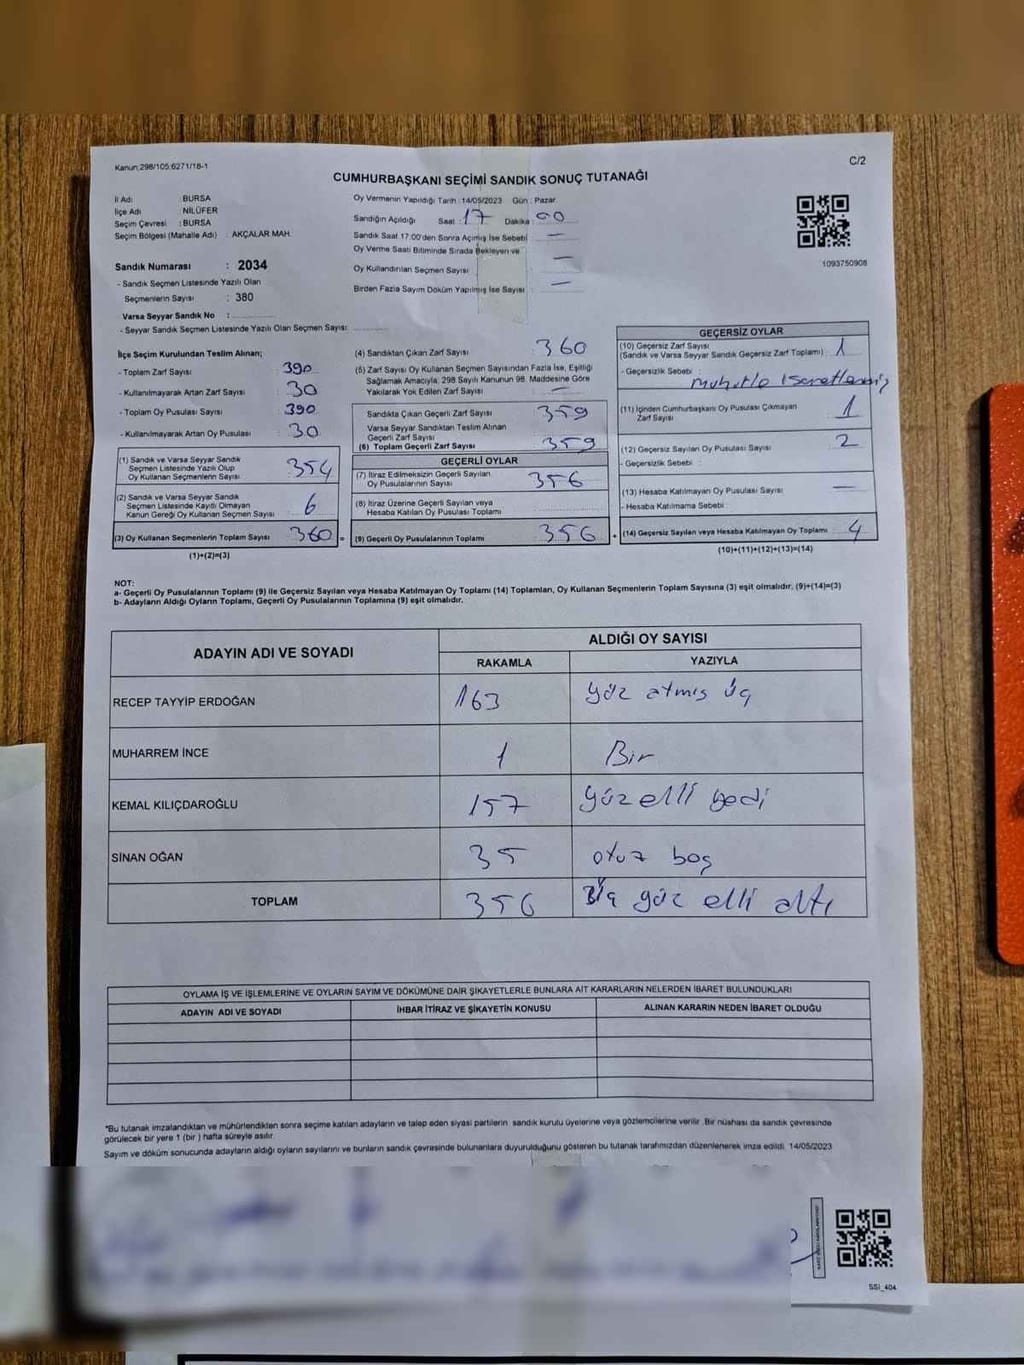 Kanun:298/105;6271/18-1
C/2
CUMHURBAŞKANI SEÇİMİ SANDIK SONUÇ TUTANAĞI
İl Adı BURSA
İlçe Adı NİLÜFER
Seçim Çevresi : BURSA
Seçim Bölgesi (Mahalle Adı) : AKÇALAR MAH.
Sandık Numarası : 2034
- Sandık Seçmen Listesinde Yazılı Olan
Seçmenlerin Sayısı : 380
Varsa Seyyar Sandık No :
- Seyyar Sandık Seçmen Listesinde Yazılı Olan Seçmen Sayısı:
Oy Vermenin Yapıldığı Tarih : 14/05/2023 Gün : Pazar
Sandığın Açıldığı Saat : 17 Dakika : 00
Sandık Saat 17:00'den Sonra Açılmış İse Sebebi : —
Oy Verme Saati Bitiminde Sırada Bekleyen ve
Oy Kullandırılan Seçmen Sayısı : —
Birden Fazla Sayım Döküm Yapılmış İse Sayısı : —
1093750908
İlçe Seçim Kurulundan Teslim Alınan;
- Toplam Zarf Sayısı : 390
- Kullanılmayarak Artan Zarf Sayısı : 30
- Toplam Oy Pusulası Sayısı : 390
- Kullanılmayarak Artan Oy Pusulası : 30
(1) Sandık ve Varsa Seyyar Sandık
Seçmen Listesinde Yazılı Olup
Oy Kullanan Seçmenlerin Sayısı 354
(2) Sandık ve Varsa Seyyar Sandık
Seçmen Listesinde Kayıtlı Olmayan
Kanun Gereği Oy Kullanan Seçmen Sayısı 6
(3) Oy Kullanan Seçmenlerin Toplam Sayısı 360 =
(1)+(2)=(3)
(4) Sandıktan Çıkan Zarf Sayısı : 360
(5) Zarf Sayısı Oy Kullanan Seçmen Sayısından Fazla İse, Eşitliği
Sağlamak Amacıyla; 298 Sayılı Kanunun 98. Maddesine Göre
Yakılarak Yok Edilen Zarf Sayısı : —
Sandıkta Çıkan Geçerli Zarf Sayısı 359
Varsa Seyyar Sandıktan Teslim Alınan
Geçerli Zarf Sayısı
(6) Toplam Geçerli Zarf Sayısı 359
GEÇERLİ OYLAR
(7) İtiraz Edilmeksizin Geçerli Sayılan
Oy Pusulalarının Sayısı 356
(8) İtiraz Üzerine Geçerli Sayılan veya
Hesaba Katılan Oy Pusulası Toplamı
(9) Geçerli Oy Pusulalarının Toplamı 356 +
GEÇERSİZ OYLAR
(10) Geçersiz Zarf Sayısı
(Sandık ve Varsa Seyyar Sandık Geçersiz Zarf Toplamı) : 1
- Geçersizlik Sebebi :
(11) İçinden Cumhurbaşkanı Oy Pusulası Çıkmayan
Zarf Sayısı 1
(12) Geçersiz Sayılan Oy Pusulası Sayısı 2
- Geçersizlik Sebebi :
(13) Hesaba Katılmayan Oy Pusulası Sayısı —
- Hesaba Katılmama Sebebi :
(14) Geçersiz Sayılan veya Hesaba Katılmayan Oy Toplamı 4
(10)+(11)+(12)+(13)=(14)
NOT:
a- Geçerli Oy Pusulalarının Toplamı (9) ile Geçersiz Sayılan veya Hesaba Katılmayan Oy Toplamı (14) Toplamları, Oy Kullanan Seçmenlerin Toplam Sayısına (3) eşit olmalıdır. (9)+(14)=(3)
b- Adayların Aldığı Oyların Toplamı, Geçerli Oy Pusulalarının Toplamına (9) eşit olmalıdır.
ADAYIN ADI VE SOYADI ALDIĞI OY SAYISI
RAKAMLA YAZIYLA
RECEP TAYYİP ERDOĞAN 163 yüz atmış üç
MUHARREM İNCE 1 Bir
KEMAL KILIÇDAROĞLU 157 yüz elli yedi
SİNAN OĞAN 35 otuz beş
TOPLAM 356 Üç yüz elli altı
OYLAMA İŞ VE İŞLEMLERİNE VE OYLARIN SAYIM VE DÖKÜMÜNE DAİR ŞİKAYETLERLE BUNLARA AİT KARARLARIN NELERDEN İBARET BULUNDUKLARI
ADAYIN ADI VE SOYADI İHBAR İTİRAZ VE ŞİKAYETİN KONUSU ALINAN KARARIN NEDEN İBARET OLDUĞU
*Bu tutanak imzalandıktan ve mühürlendikten sonra seçime katılan adayların ve talep eden siyasi partilerin sandık kurulu üyelerine veya gözlemcilerine verilir. Bir nüshası da sandık çevresinde
görülecek bir yere 1 (bir) hafta süreyle asılır.
Sayım ve döküm sonucunda adayların aldığı oyların sayılarını ve bunların sandık çevresinde bulunanlara duyurulduğunu gösteren bu tutanak tarafımızdan düzenlenerek imza edildi. 14/05/2023
SSI_404